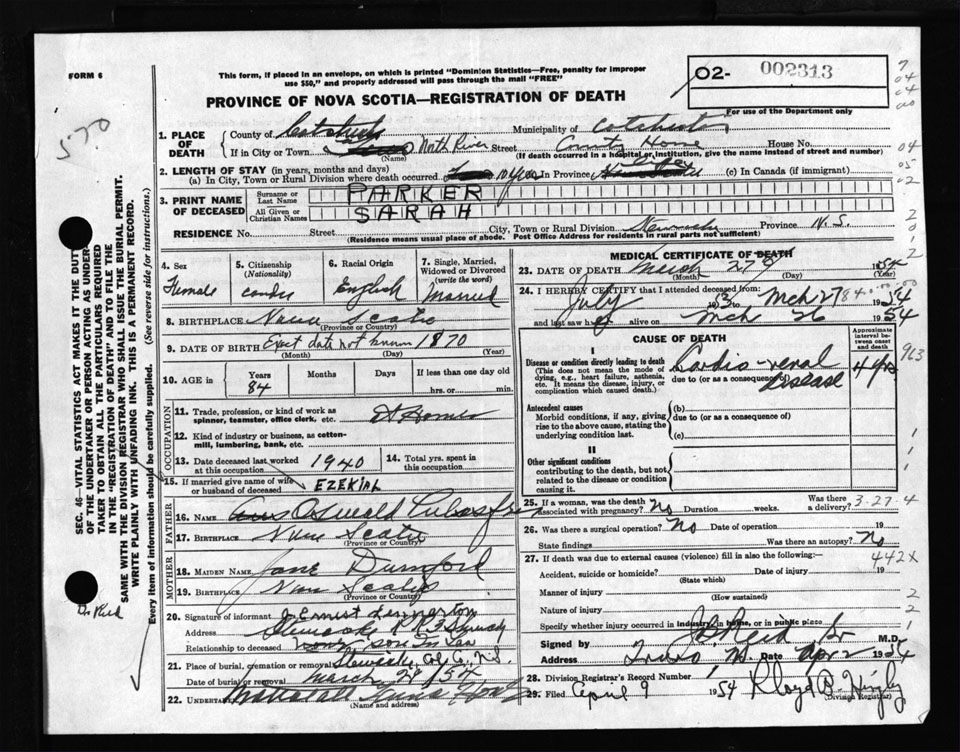 FORM 6
This form, if placed in an envelope, on which is printed "Dominion Statistics—Free, penalty for improper
use $50," and properly addressed will pass through the mail "FREE"
02- 002313
For use of the Department only
PROVINCE OF NOVA SCOTIA—REGISTRATION OF DEATH
570
1. PLACE OF DEATH
County of Colchester Municipality of Colchester
If in City or Town North River Street County Home House No.
(Name) (If death occurred in a hospital or institution, give name instead of street and number)
2. LENGTH OF STAY (in years, months and days)
(a) In City, Town or Rural Division where death occurred 10 yrs (b) In Province (c) In Canada (if immigrant)
3. PRINT NAME OF DECEASED
Surname or Last Name PARKER
All Given or Christian Names SARAH
RESIDENCE No. Street City, Town or Rural Division Province N.S.
(Residence means usual place of abode. Post Office Address for residents in rural parts not sufficient)
4. Sex Female
5. Citizenship (Nationality)
6. Racial Origin English
7. Single, Married, Widowed or Divorced (write the word) Married
8. BIRTHPLACE Nova Scotia
(Province or Country)
9. DATE OF BIRTH Exact date not known 1870
(Month) (Day) (Year)
10. AGE in Years 84 Months Days If less than one day hrs. or min.
OCCUPATION
11. Trade, profession, or kind of work as spinner, teamster, office clerk, etc. At Home
12. Kind of industry or business, as cotton-mill, lumbering, bank, etc.
13. Date deceased last worked at this occupation 1940
14. Total yrs. spent in this occupation
15. If married give name of wife or husband of deceased EZEKIAL
FATHER
16. Name Oswald
17. Birthplace Nova Scotia
(Province or Country)
MOTHER
18. Maiden Name Jane
19. Birthplace Nova Scotia
(Province or Country)
20. Signature of informant Ernist
Address R R 3
Relationship to deceased son in Law
21. Place of burial, cremation or removal Col Co, N.S.
Date of burial or removal March 29/54
22. Undertaker
(Name and address)
MEDICAL CERTIFICATE OF DEATH
23. DATE OF DEATH March 27 1954
(Month) (Day) (Year)
24. I HEREBY CERTIFY that I attended deceased from:
July 1953 to Mch 27 1954
and last saw h alive on Mch 26 1954
CAUSE OF DEATH
Approximate interval between onset and death
I
Disease or condition directly leading to death
(This does not mean the mode of dying, e.g., heart failure, asthenia, etc. It means the disease, injury, or complication which caused death.)
(a) Cardio-renal disease 4 yrs
due to (or as a consequence of)
Antecedent causes
Morbid conditions, if any, giving rise to the above cause, stating the underlying condition last.
(b)
due to (or as a consequence of)
(c)
II
Other significant conditions
contributing to the death, but not related to the disease or condition causing it.
25. If a woman, was the death associated with pregnancy? No Duration weeks. Was there a delivery?
3-27-4
26. Was there a surgical operation? No Date of operation 19
State findings Was there an autopsy? No
27. If death was due to external causes (violence) fill in also the following:—
442X
Accident, suicide or homicide? Date of injury 19
(State which)
Manner of injury
(How sustained)
Nature of injury
Specify whether injury occurred in industry, in home, or in public place
Signed by Reid M.D.
Address Truro N.S. Date Apr 2 1954
28. Division Registrar's Record Number
29. Filed April 9 1954 Lloyd B.
(Division Registrar)
SEC. 46—VITAL STATISTICS ACT MAKES IT THE DUTY
OF THE UNDERTAKER OR PERSON ACTING AS UNDER-
TAKER TO OBTAIN ALL THE PARTICULARS REQUIRED
IN THE "REGISTRATION OF DEATH" AND TO FILE THE
SAME WITH THE DIVISION REGISTRAR WHO SHALL ISSUE THE BURIAL PERMIT.
WRITE PLAINLY WITH UNFADING INK. THIS IS A PERMANENT RECORD.
Every item of information should be carefully supplied. (See reverse side for instructions.)
Dr Reid